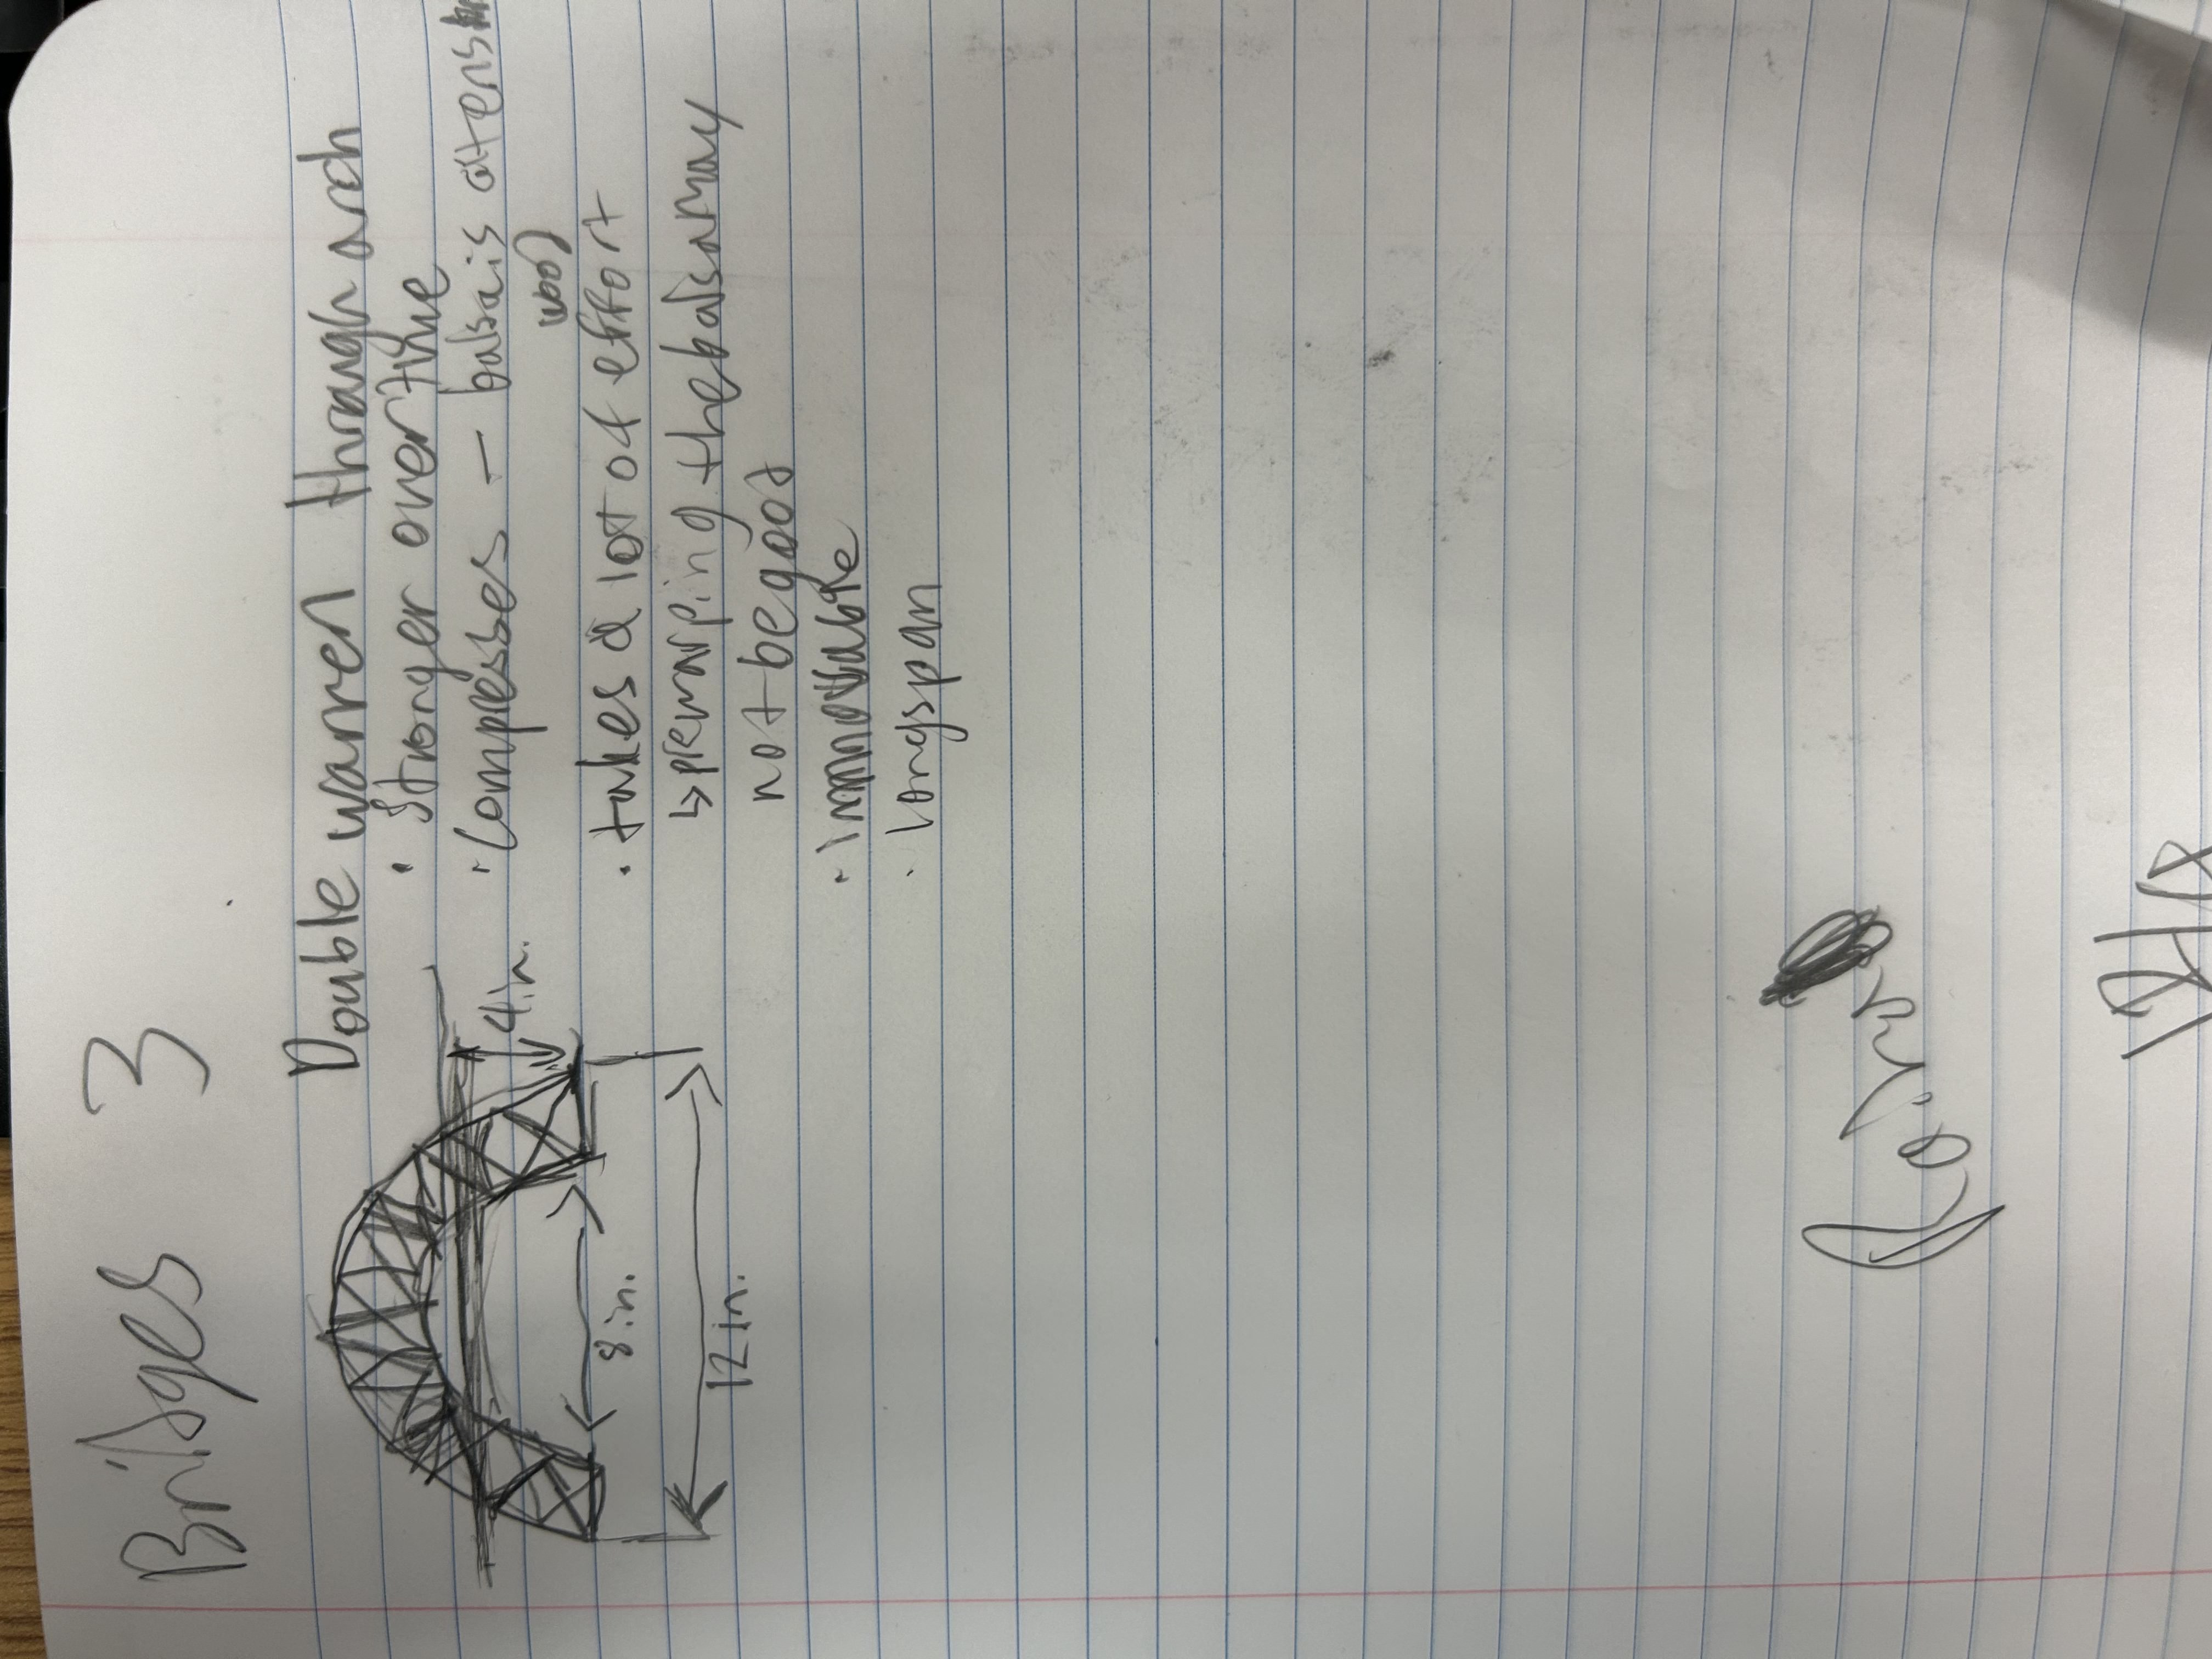 Bridges 3
Double warren through arch
• Stronger overtime
• compresses — balsa is a tensile
wood
• takes a lot of effort
↳ prewarping the balsa may
not be good
• immovable
• long span
4in.
8in.
12in.